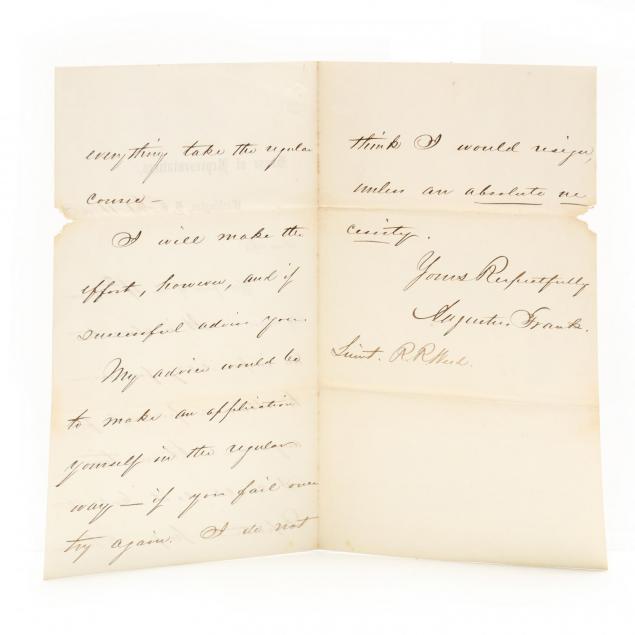 everything take the regular
course —
I will make the
effort, however, and if
successful advise you.
My advice would be
to make an application
yourself in the regular
way — if you fail once
try again. I do not
think I would resign,
unless an absolute ne
cessity.
Yours Respectfully
Augustus Frank.
Lieut. R. R.